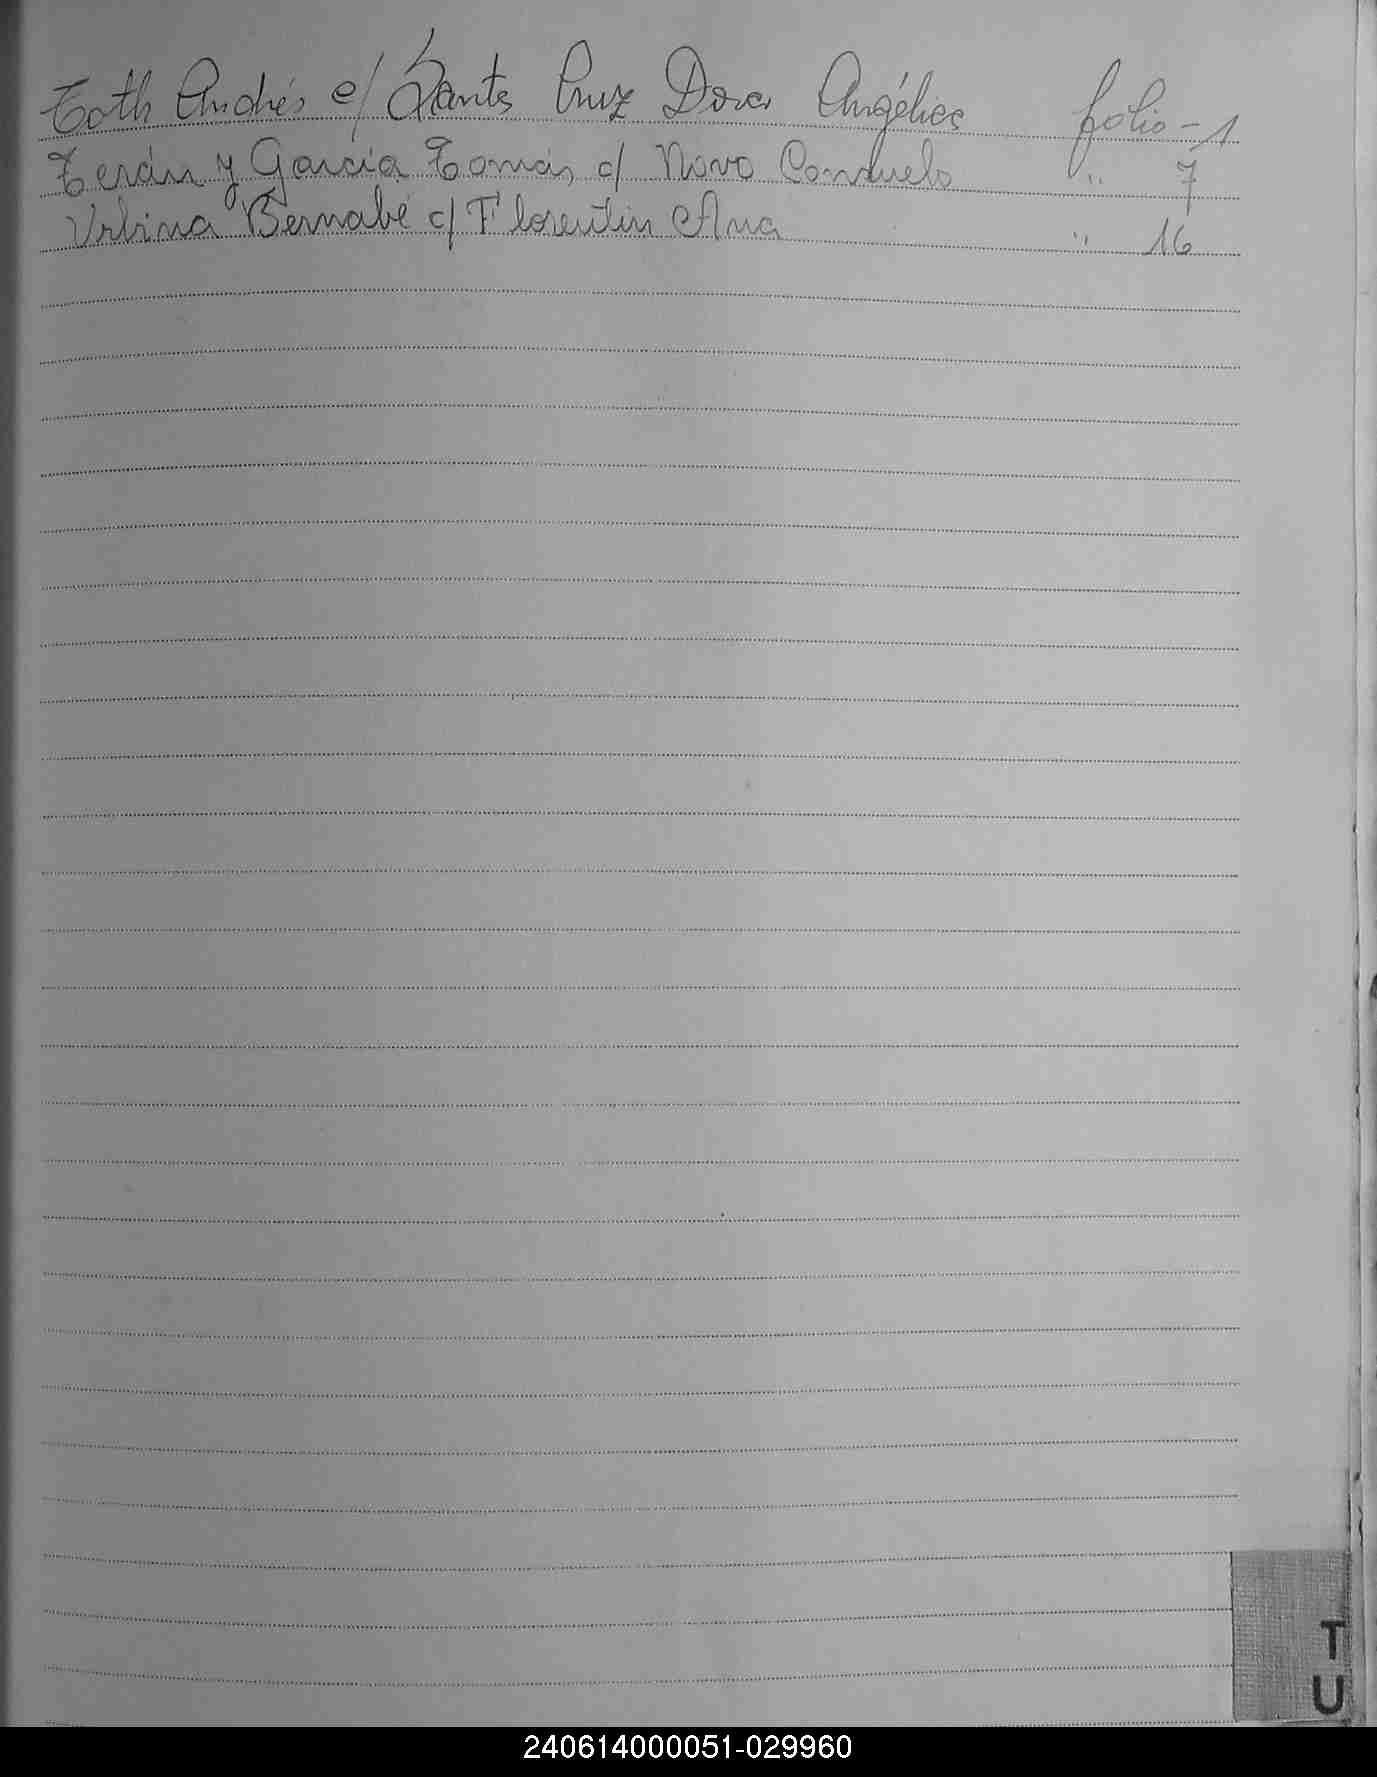 Toth Andrés c/ Santa Cruz Dora Angélica folio - 1
Terán y García Tomás c/ Novo Consuelo " 7
Urbina Bernabé c/ Florentin Ana " 16
T
U
240614000051-029960